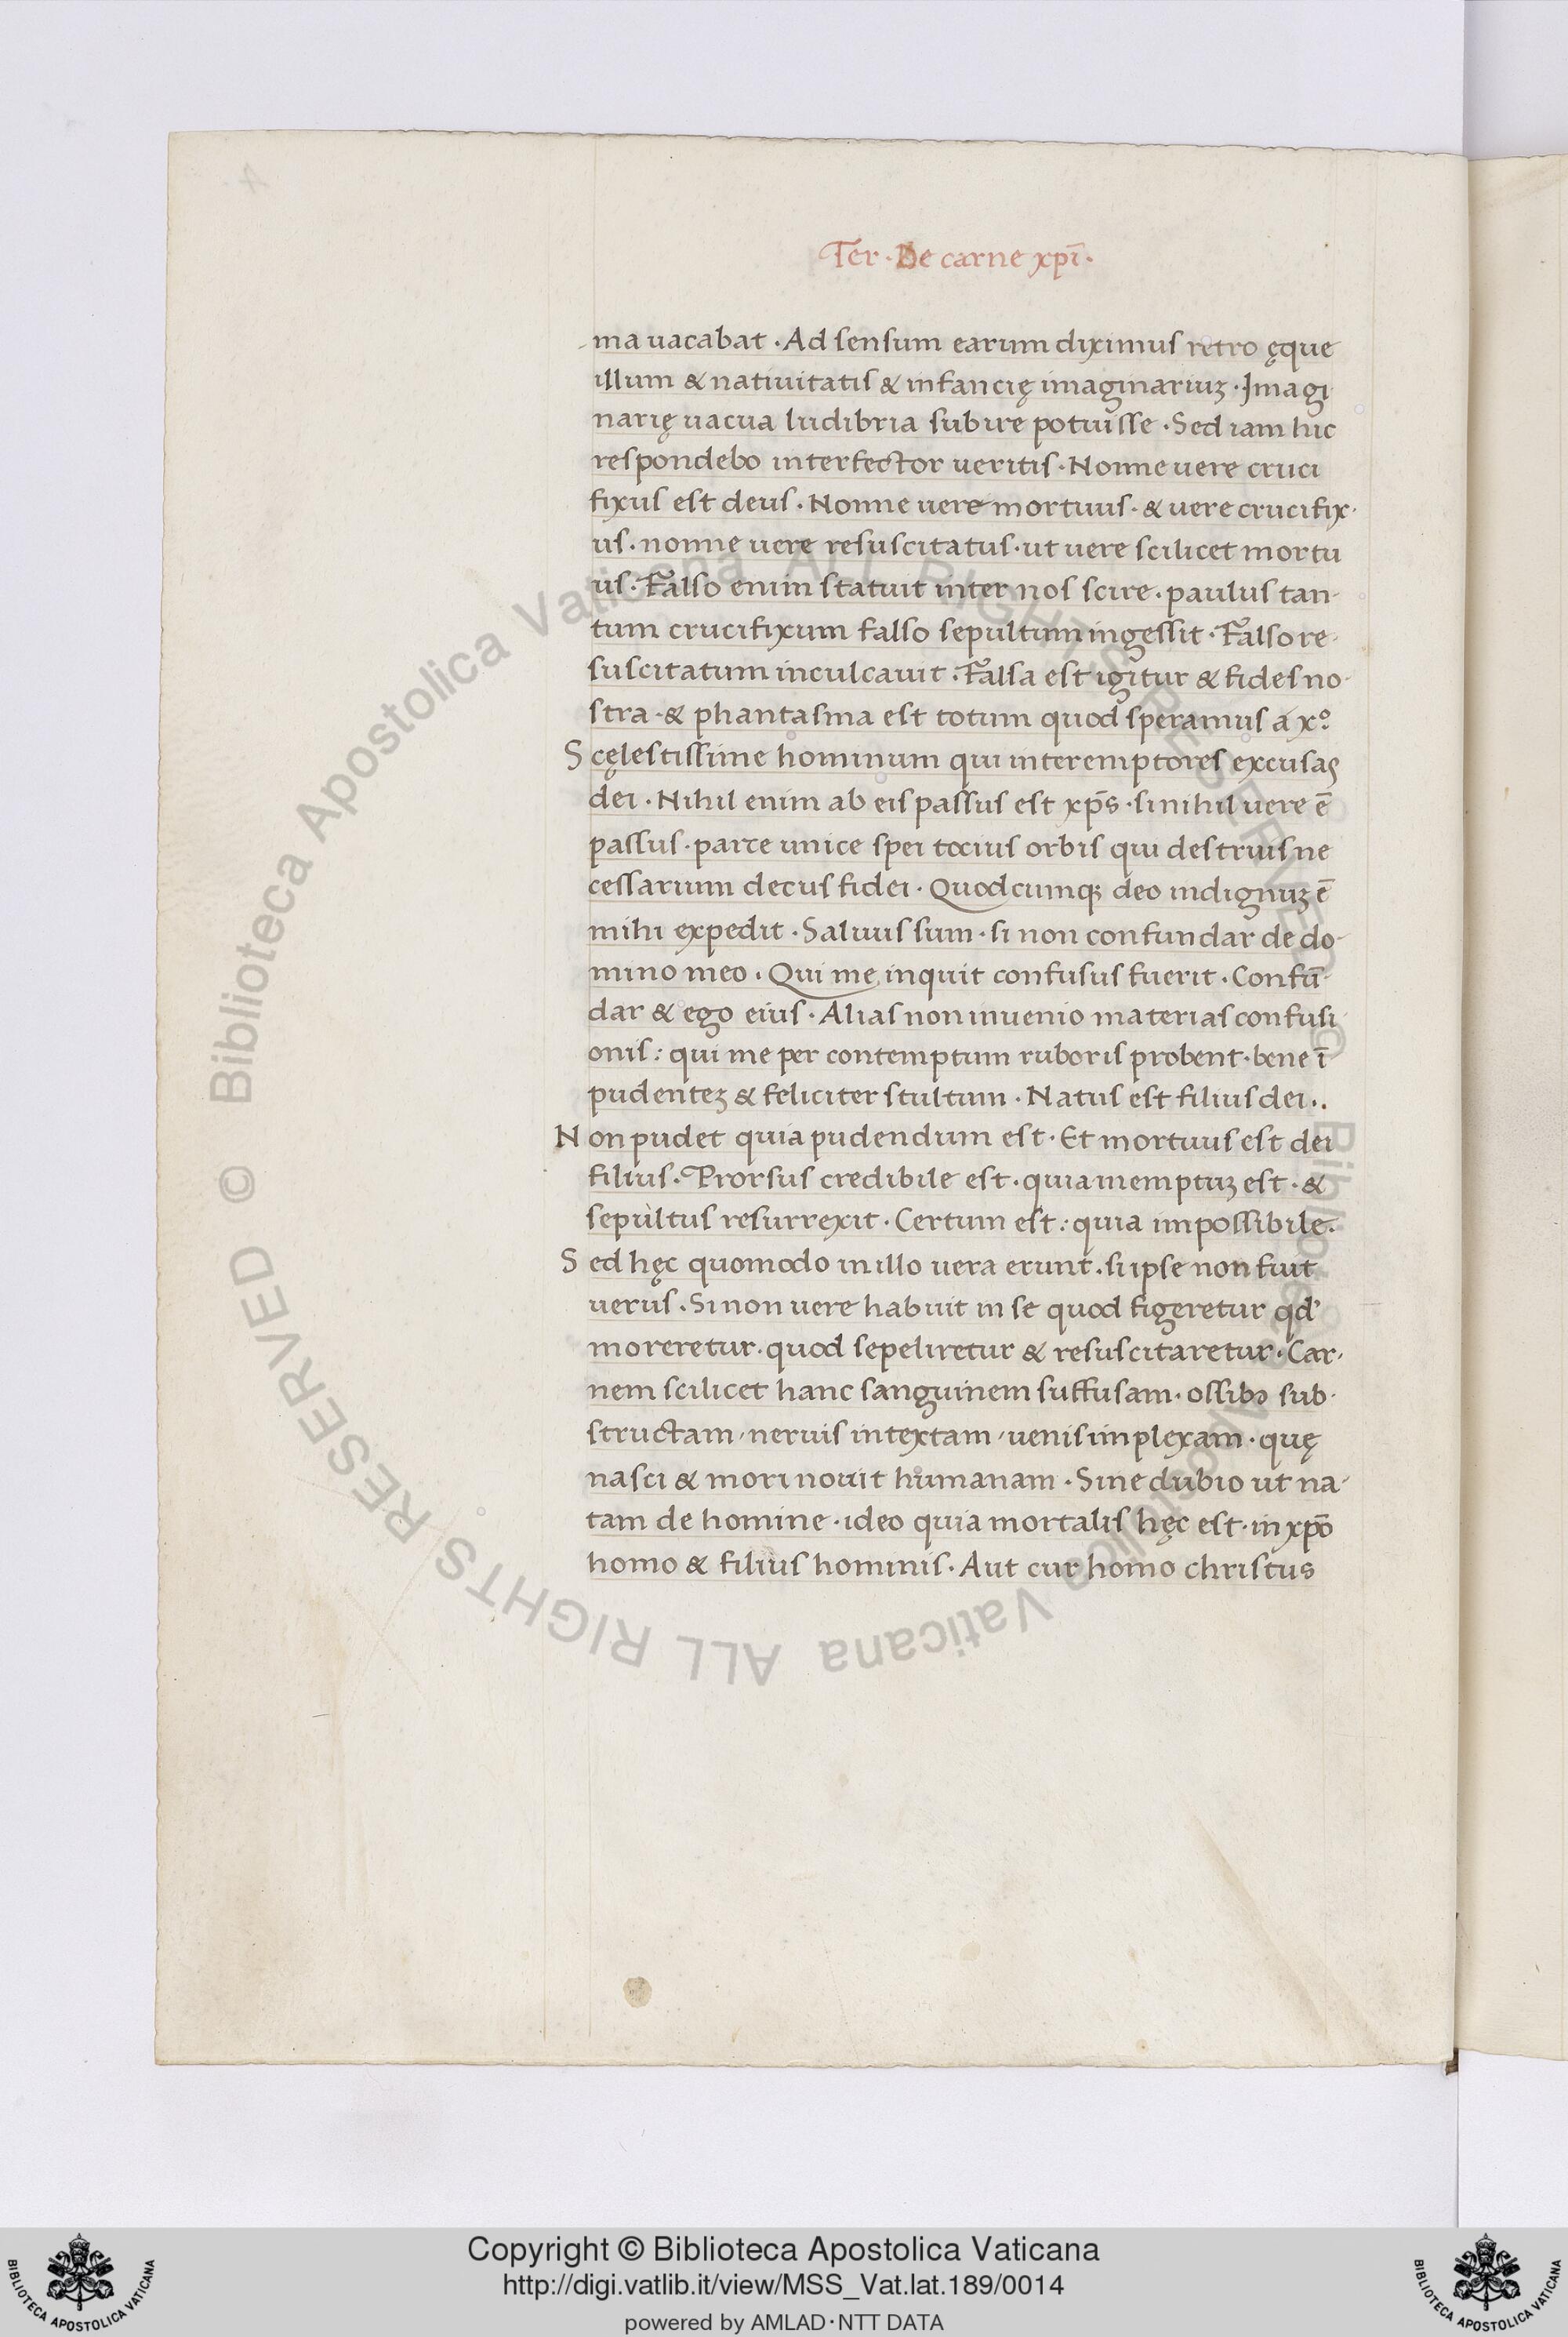 Ter · De carne xpī ·
ma uacabat · Ad sensum earum diximus retro ęque
illum & natiuitatis & infancię imaginariuʒ · Imagi
narię uacua ludibria subire potuisse · Sed iam hic
respondebo interfector ueritis · Nonne uere cruci
fixus est deus · Nonne uere mortuus · & uere crucifix·
us · nonne uere resuscitatus · ut uere scilicet mortu
us · Falso enim statuit inter nos scire · paulus tan-
tum crucifixum falso sepultum ingessit · Falso re-
suscitatum inculcauit · Falsa est igitur & fides no-
stra · & phantasma est totum quod speramus a xº.
Scęlestissime hominum qui interemptores excusas
dei · Nihil enim ab eis passus est xp̄s · si nihil uere ē
passus · parce unice spei tocius orbis qui destruis ne
cessarium decus fidei · Quodcumqꝫ deo indignuʒ ē
mihi expedit · Saluus sum · si non confundar de do-
mino meo · Qui me inquit confusus fuerit · Confū-
dar & ego eius · Alias non inuenio materias confusi
onis : qui me per contemptum ruboris probent · bene ī
pudenteʒ & feliciter stultum · Natus est filius dei ..
Non pudet quia pudendum est · Et mortuus est dei
filius · Prorsus credibile est · quia inemptuʒ est · &
sepultus resurrexit · Certum est : quia impossibile ·
Sed hęc quomodo in illo uera erunt · si ipse non fuit
uerus · Si non uere habuit in se quod figeretur qd'
moreretur · quod sepeliretur & resuscitaretur · Car-
nem scilicet hanc sanguinem suffusam · ossibꝫ sub-
structam, neruis intextam, uenis implexam · quę
nasci & mori nouit humanam · Sine dubio ut na-
tam de homine · ideo quia mortalis hęc est · in xpō
homo & filius hominis · Aut cur homo christus
Copyright © Biblioteca Apostolica Vaticana
http://digi.vatlib.it/view/MSS_Vat.lat.189/0014
powered by AMLAD·NTT DATA
BIBLIOTECA APOSTOLICA VATICANA
BIBLIOTECA APOSTOLICA VATICANA
© Biblioteca Apostolica Vaticana ALL RIGHTS RESERVED
© Biblioteca Apostolica Vaticana ALL RIGHTS RESERVED